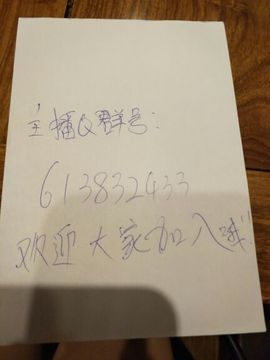 主播Q群号:
613832433
欢迎大家加入哦!!